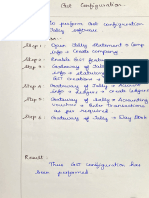 Gst Configuration
To perform Gst configuration
Tally software
Step 1: Open Tally statement → Comp
info → Create company
Step 2: Enable GST featu
Step 3: Gateway of Tally →
info → statutory
Gst →
Step 4: Gateway of Tally → Accou
info → ledgers → create ledgers
Step 5: Gateway of tally → Accounting
voucher →
as per required
Step 6: Gateway of Tally → Day Book
Result:
Thus GST configuration has
been performed